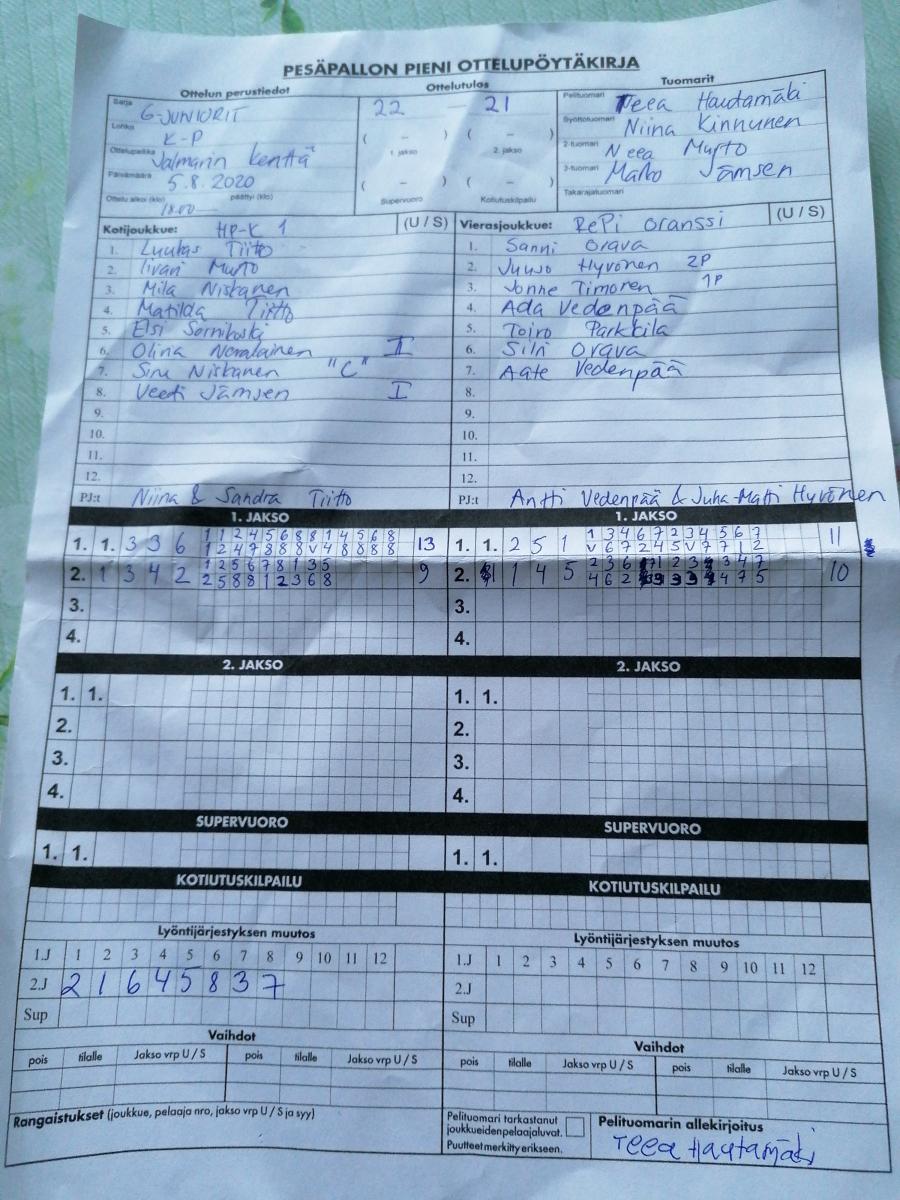 PESÄPALLON PIENI OTTELUPÖYTÄKIRJA
Ottelun perustiedot
Ottelutulos
Tuomarit
Sarja G-JUNIORIT
Lohko K-P
Ottelupaikka Jalmarin kenttä
Päivämäärä 5.8.2020
Ottelu alkoi (klo) 18.00 päättyi (klo)
22 – 21
( – ) ( – )
1. jakso 2. jakso
( – ) ( – )
Supervuoro Kotiutuskilpailu
Pelituomari Teea Hautamäki
Syöttötuomari Niina Kinnunen
2-tuomari Neea Murto
3-tuomari Marko Jämsen
Takarajatuomari
Kotijoukkue: HP-K 1 (U / S)
1. Luukas Tiitto
2. Iivari Murto
3. Mila Niskanen
4. Matilda Tiitto
5. Elsi Sornikoski
6. Olina II
7. Siru Niskanen "C"
8. Veeti Jämsen I
9.
10.
11.
12.
PJ:t Niina & Sandra Tiitto
Vierasjoukkue: RePi Oranssi (U / S)
1. Sanni Orava
2. Juuso Hyvönen 2P
3. Jonne Timonen 1P
4. Ada Vedenpää
5. Toivo Parkkila
6. Silri Orava
7. Aate Vedenpää
8.
9.
10.
11.
12.
PJ:t Antti Vedenpää & Juha-Matti Hyvönen
1. JAKSO
1. 1. 3 3 6 1 1 2 4 5 6 8 8 1 4 5 6 8 13
1 2 4 7 8 8 8 V 4 8 8 8 8
2. 1 3 4 2 1 2 5 6 7 8 1 3 5 9
2 5 8 8 1 2 3 6 8
3.
4.
1. JAKSO
1. 1. 2 5 1 1 3 4 6 7 2 3 4 5 6 7 11
V 6 7 2 4 5 V 7 7 1 2
2. 1 1 4 5 2 3 6 1 2 3 3 4 7 10
4 6 2 3 3 3 4 7 5
3.
4.
2. JAKSO
1. 1.
2.
3.
4.
2. JAKSO
1. 1.
2.
3.
4.
SUPERVUORO
1. 1.
SUPERVUORO
1. 1.
KOTIUTUSKILPAILU
KOTIUTUSKILPAILU
Lyöntijärjestyksen muutos
1.J 1 2 3 4 5 6 7 8 9 10 11 12
2.J 2 1 6 4 5 8 3 7
Sup
Lyöntijärjestyksen muutos
1.J 1 2 3 4 5 6 7 8 9 10 11 12
2.J
Sup
Vaihdot
pois tilalle Jakso vrp U / S pois tilalle Jakso vrp U / S
Vaihdot
pois tilalle Jakso vrp U / S pois tilalle Jakso vrp U / S
Rangaistukset (joukkue, pelaaja nro, jakso vrp U / S ja syy)
Pelituomari tarkastanut
joukkueidenpelaajaluvat.
Puutteet merkitty erikseen.
Pelituomarin allekirjoitus
Teea Hautamäki